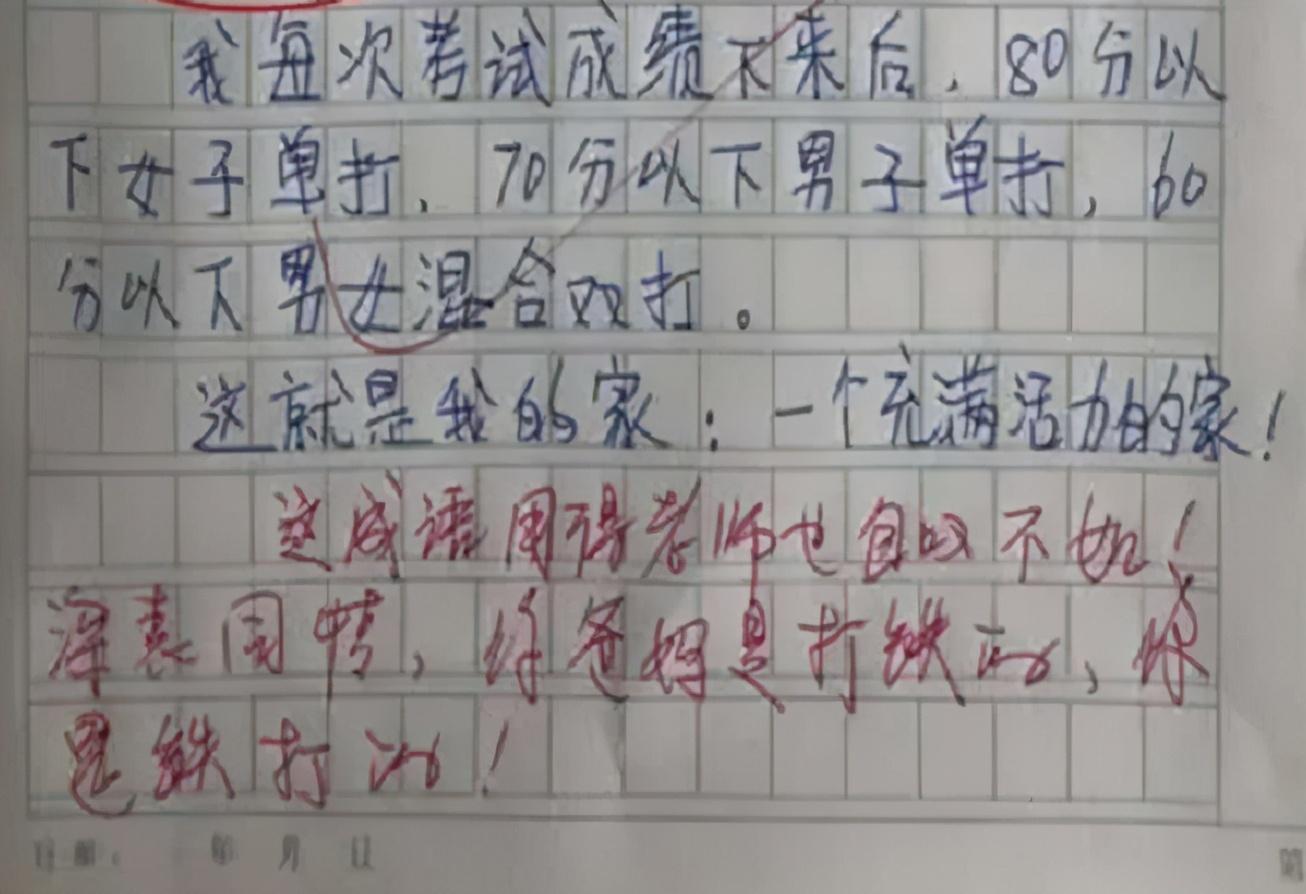 我每次考试成绩下来后，80分以
下女子单打，70分以下男子单打，60
分以下男女混合双打。
这就是我的家：一个充满活力的家！
这成语用得老师也自叹不如！
深表同情，你爸妈是打铁的，你
是铁打的！
年 月 日